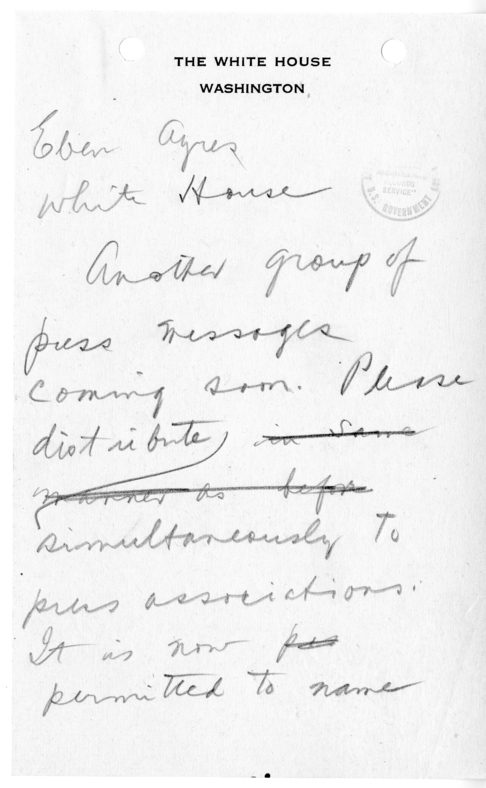 THE WHITE HOUSE
WASHINGTON
Eben Ayres
White House
Another group of
press messages
coming soon. Please
distribute in same
manner as before
simultaneously to
press associations.
It is now
permitted to name
U.S. GOVERNMENT